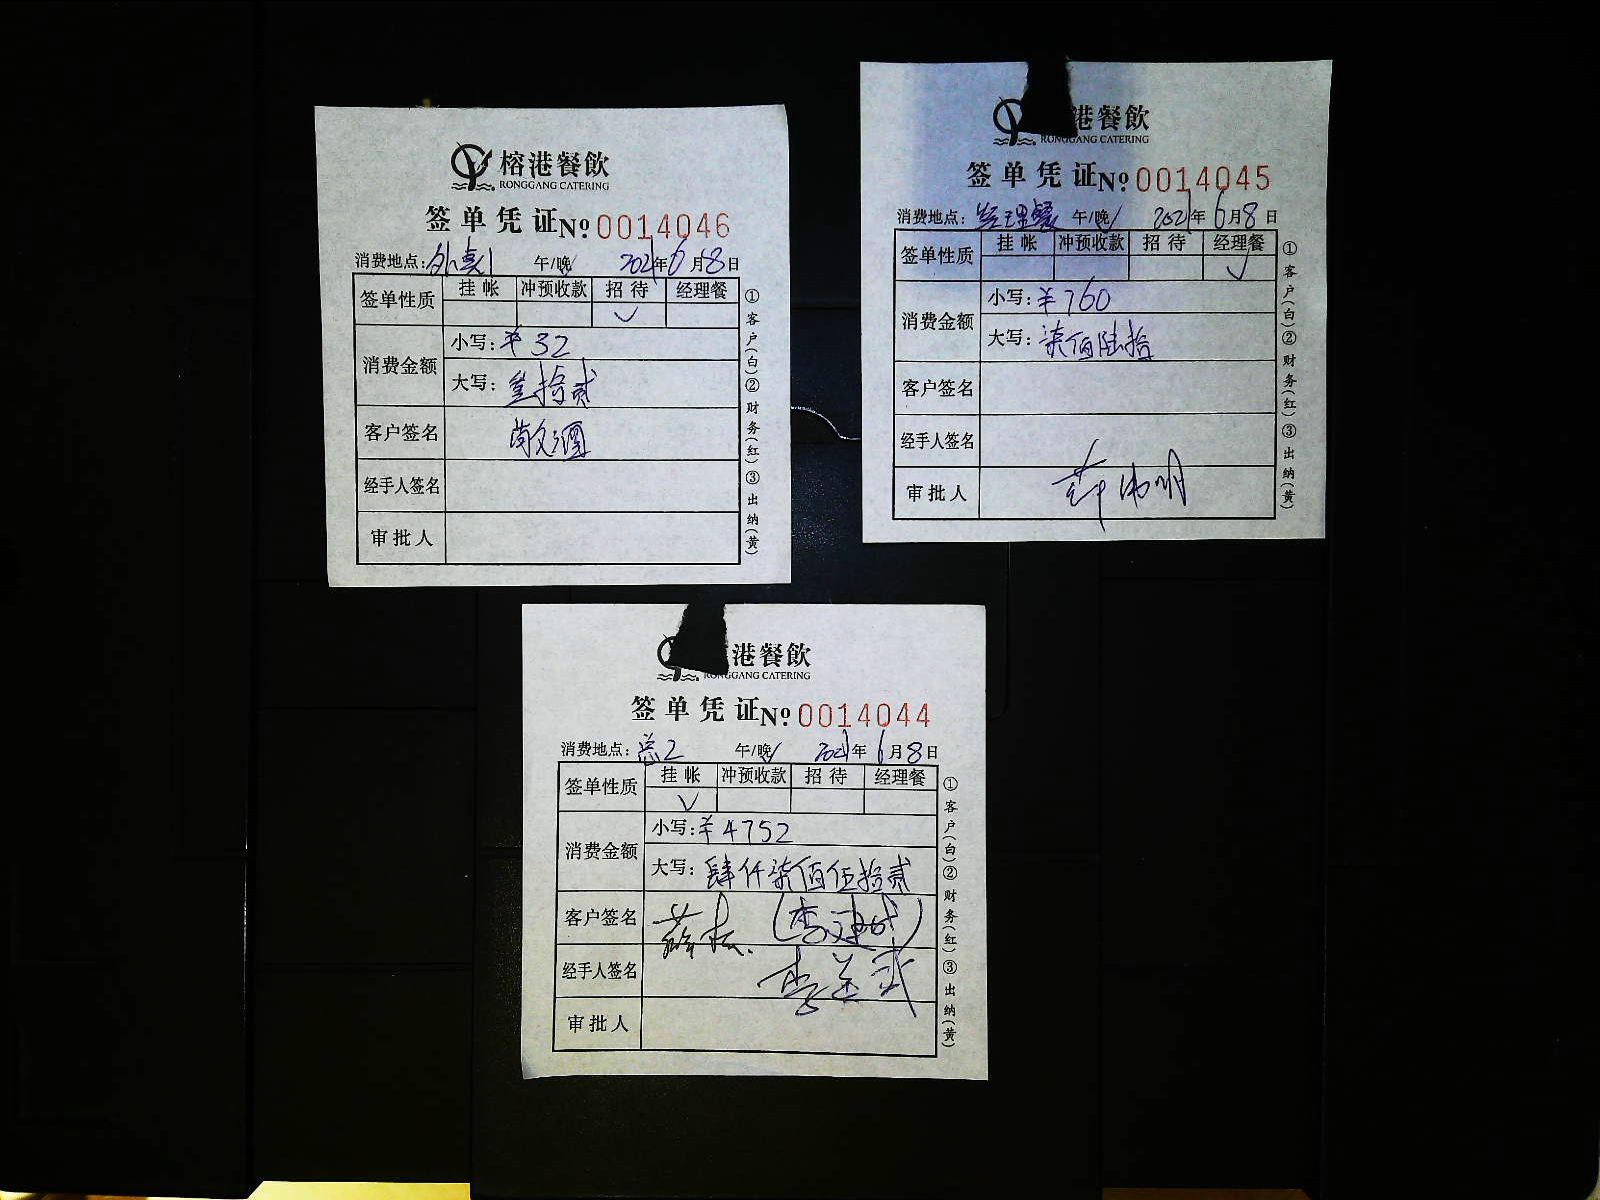 榕港餐飲
RONGGANG CATERING
签单凭证 No 0014046
消费地点:外卖1 午/晚√ 2021年6月8日
签单性质 挂帐 冲预收款 招待 经理餐
√
消费金额 小写:¥32
大写:叁拾贰
客户签名
经手人签名
审批人
①客户(白)②财务(红)③出纳(黄)
港餐飲
RONGGANG CATERING
签单凭证 No 0014045
消费地点:经理餐 午/晚√ 2021年6月8日
签单性质 挂帐 冲预收款 招待 经理餐
√
消费金额 小写:¥760
大写:柒佰陆拾
客户签名
经手人签名
审批人
①客户(白)②财务(红)③出纳(黄)
港餐飲
RONGGANG CATERING
签单凭证 No 0014044
消费地点:总2 午/晚√ 2021年6月8日
签单性质 挂帐 冲预收款 招待 经理餐
√
消费金额 小写:¥4752
大写:肆仟柒佰伍拾贰
客户签名
经手人签名
审批人
①客户(白)②财务(红)③出纳(黄)